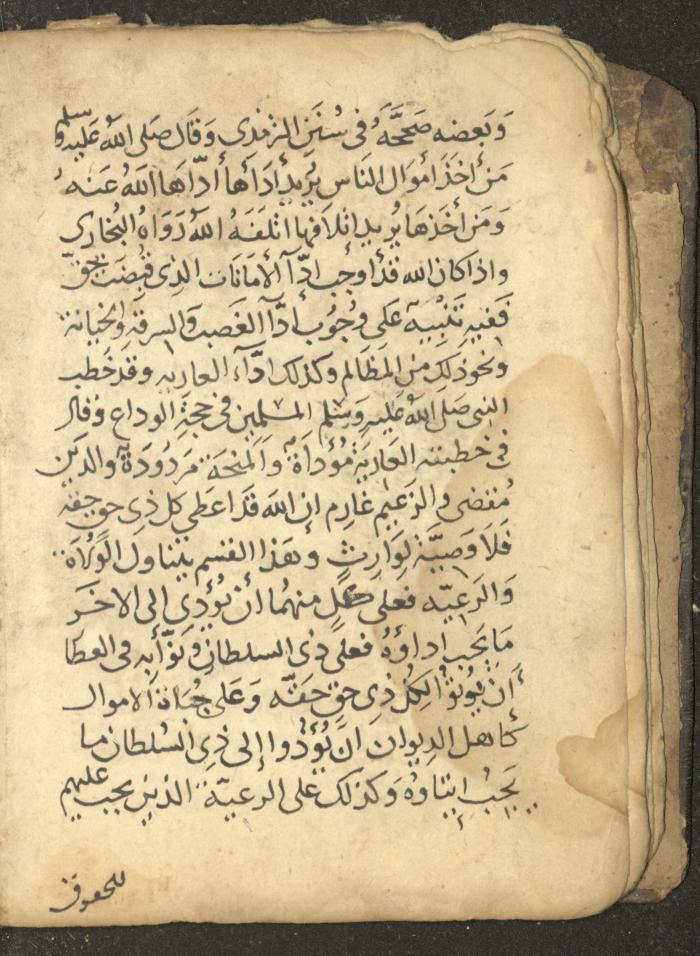 وَبَعضه صَحَّحَهُ فى سُنَنِ الترمذى وَقَال صَلى اللهُ عَليهِ وسلم
مَن أخَذَ أموَال النَاس يُريدُ أدَاَءها أدّاهَا اللهُ عَنهُ
وَمَن أخَذهَا يُريد اتلافها اتلَفَهُ اللهُ رَوَاهُ البُخارى
واذا كان الله قد أوجَب ادّآ الأمَانَات الذِى قُبِضَت بحَقّ
فَفيهِ تَنبِيه عَلى وجُوب أدّآ الغَصب وَالسرقةِ والخيانة
ونحو ذلِك مِن المَظَالم وكذلك ادّاء العاريه وقد خَطب
النبى صَلى اللهُ عَليهِ وَسَلم المسلمين فى حجةِ الوداع وقال
فى خطبته العَاريَة مُؤدَاةٌ وَالمنحَة مَردُودَةٌ والدَين
مُقضى والزعيم غَارِم إن الله قَد اعطى كل ذِى حق حقه
فَلَا وَصِيَّة لِوَارِثٍ وهَذا القسم يتناول الوُلَاة
وَالرَعِيّه فعلى كل منهُما أن يُؤدِي الى الاخَر
مَا يَجب اداؤهُ فعلى ذى السلطان ونوّابه فى العطا
أن يُوتوا لِكُل ذى حق حَقّه وَعَلى جُبَاة الاموال
كاهل الدِيوان ان يُؤَدوا إلى ذِى السُلطان ما
يَجبُ ايتاوهُ وَكذلك على الرعيّة الذين يجب عليهم
للحقوق